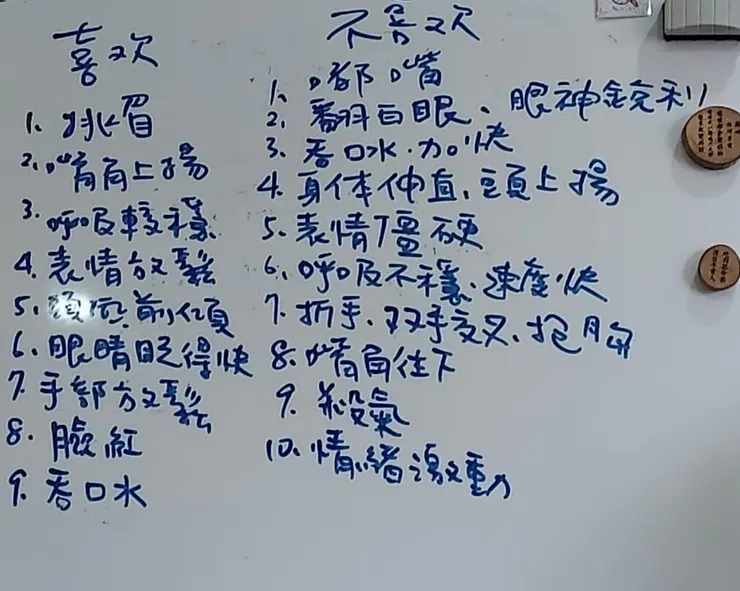 喜欢
1. 挑眉
2. 嘴角上揚
3. 呼吸較穩
4. 表情放鬆
5. 頭向前傾
6. 眼睛眨得快
7. 手部放鬆
8. 臉紅
9. 吞口水
不喜欢
1. 嘟嘴
2. 翻白眼、眼神銳利
3. 吞口水.加快
4. 身体伸直,頭上揚
5. 表情僵硬
6. 呼吸不穩、速度快
7. 折手、双手交叉、抱胸
8. 嘴角往下
9. 殺氣
10. 情緒激動